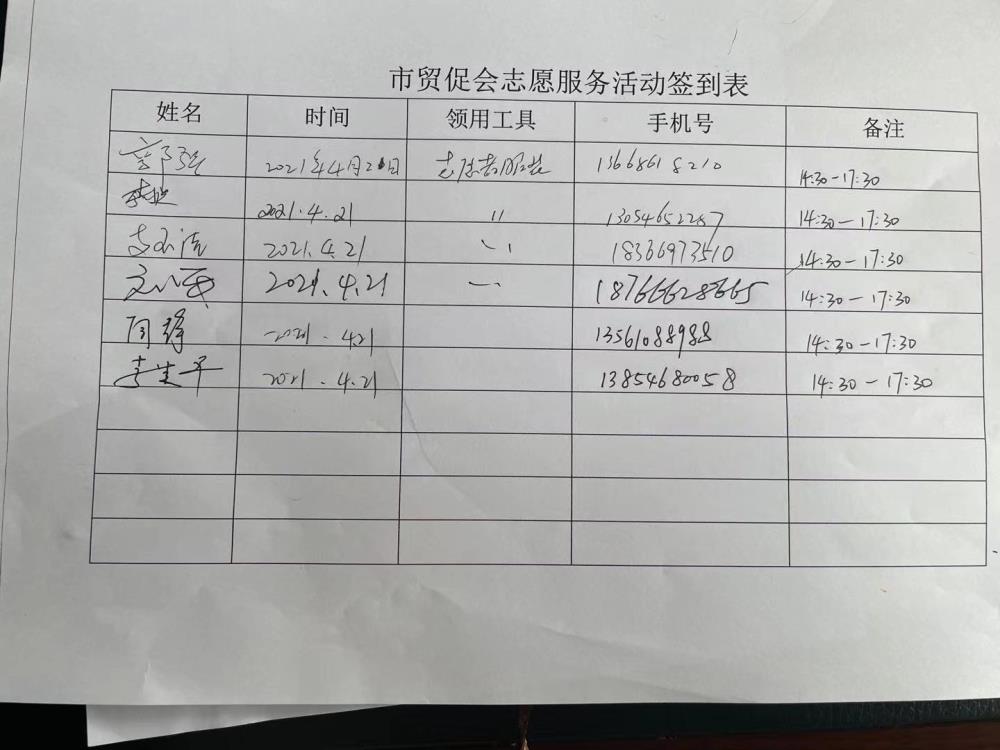 市贸促会志愿服务活动签到表
姓名 时间 领用工具 手机号 备注
2021年4月21日 志愿者服装 13668618210 14:30-17:30
2021.4.21 〃 13054652287 14:30-17:30
2021.4.21 18366973510 14:30-17:30
2021.4.21 18766628665 14:30-17:30
周锋 2021.4.21 13561088988 14:30-17:30
李建平 2021.4.21 13854680058 14:30-17:30